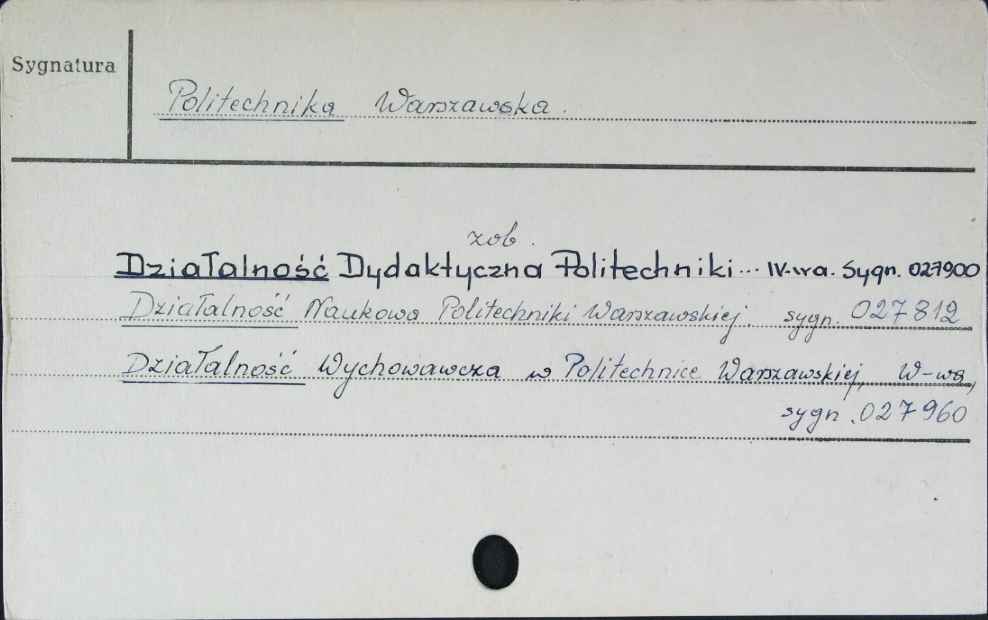 Sygnatura
Politechnika Warszawska.
zob.
Działalność Dydaktyczna Politechniki... W-wa. Sygn. 027900
Działalność Naukowa Politechniki Warszawskiej. sygn. 027812
Działalność Wychowawcza w Politechnice Warszawskiej, W-wa,
sygn. 027960